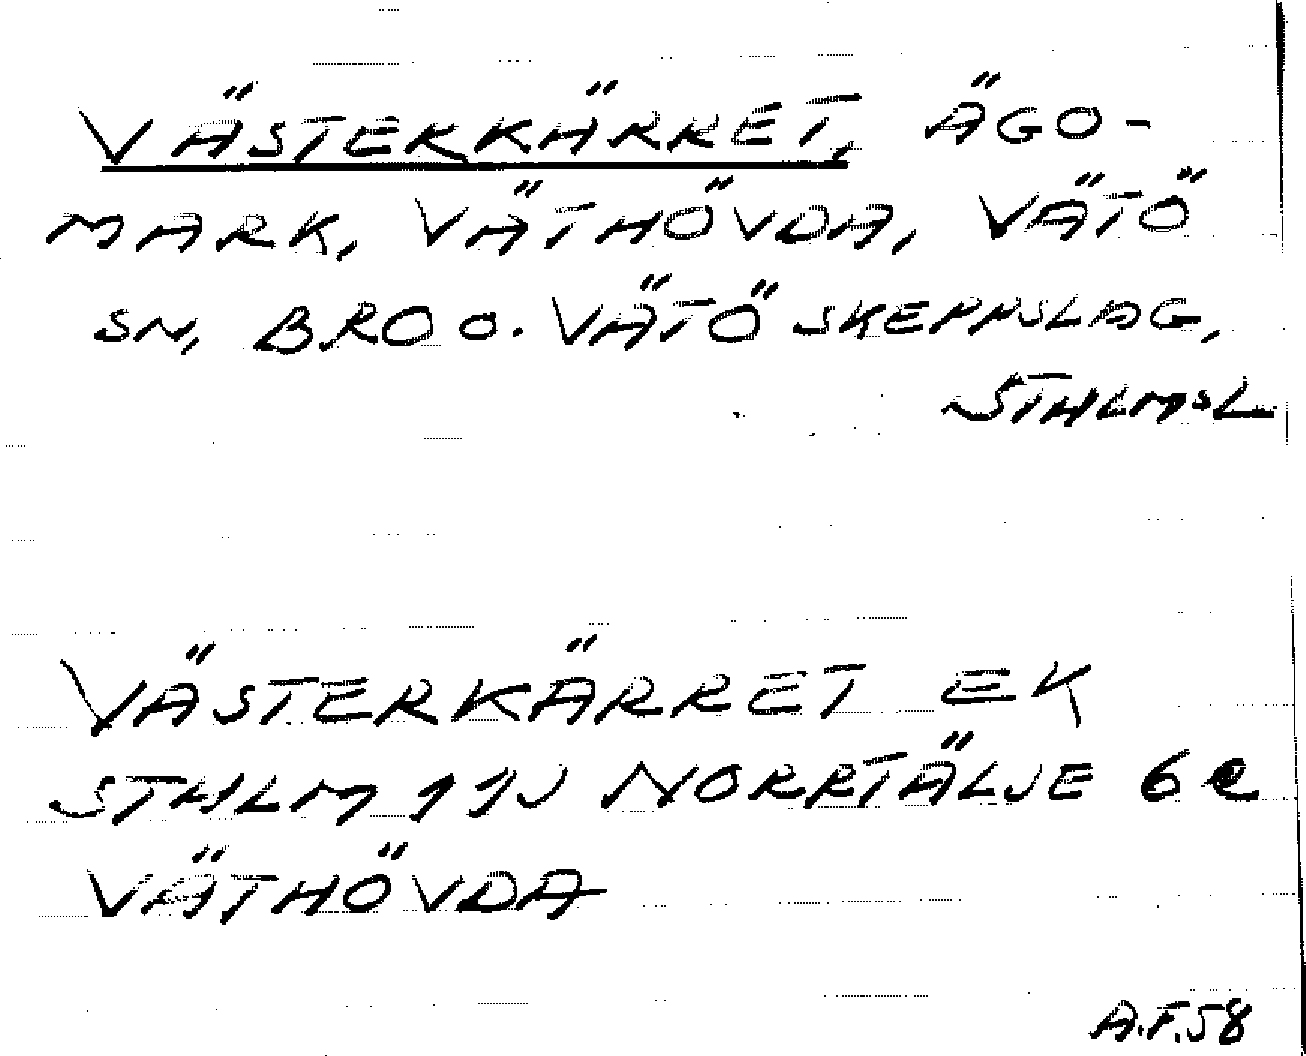 VÄSTERKÄRRET, ÄGO-
MARK, VÄTHÖVDA, VÄTÖ
SN, BRO O. VÄTÖ SKEPPSLAG,
STHLMSL
VÄSTERKÄRRET EK
STHLM 11J NORRTÄLJE 6e
VÄTHÖVDA
A.F.58